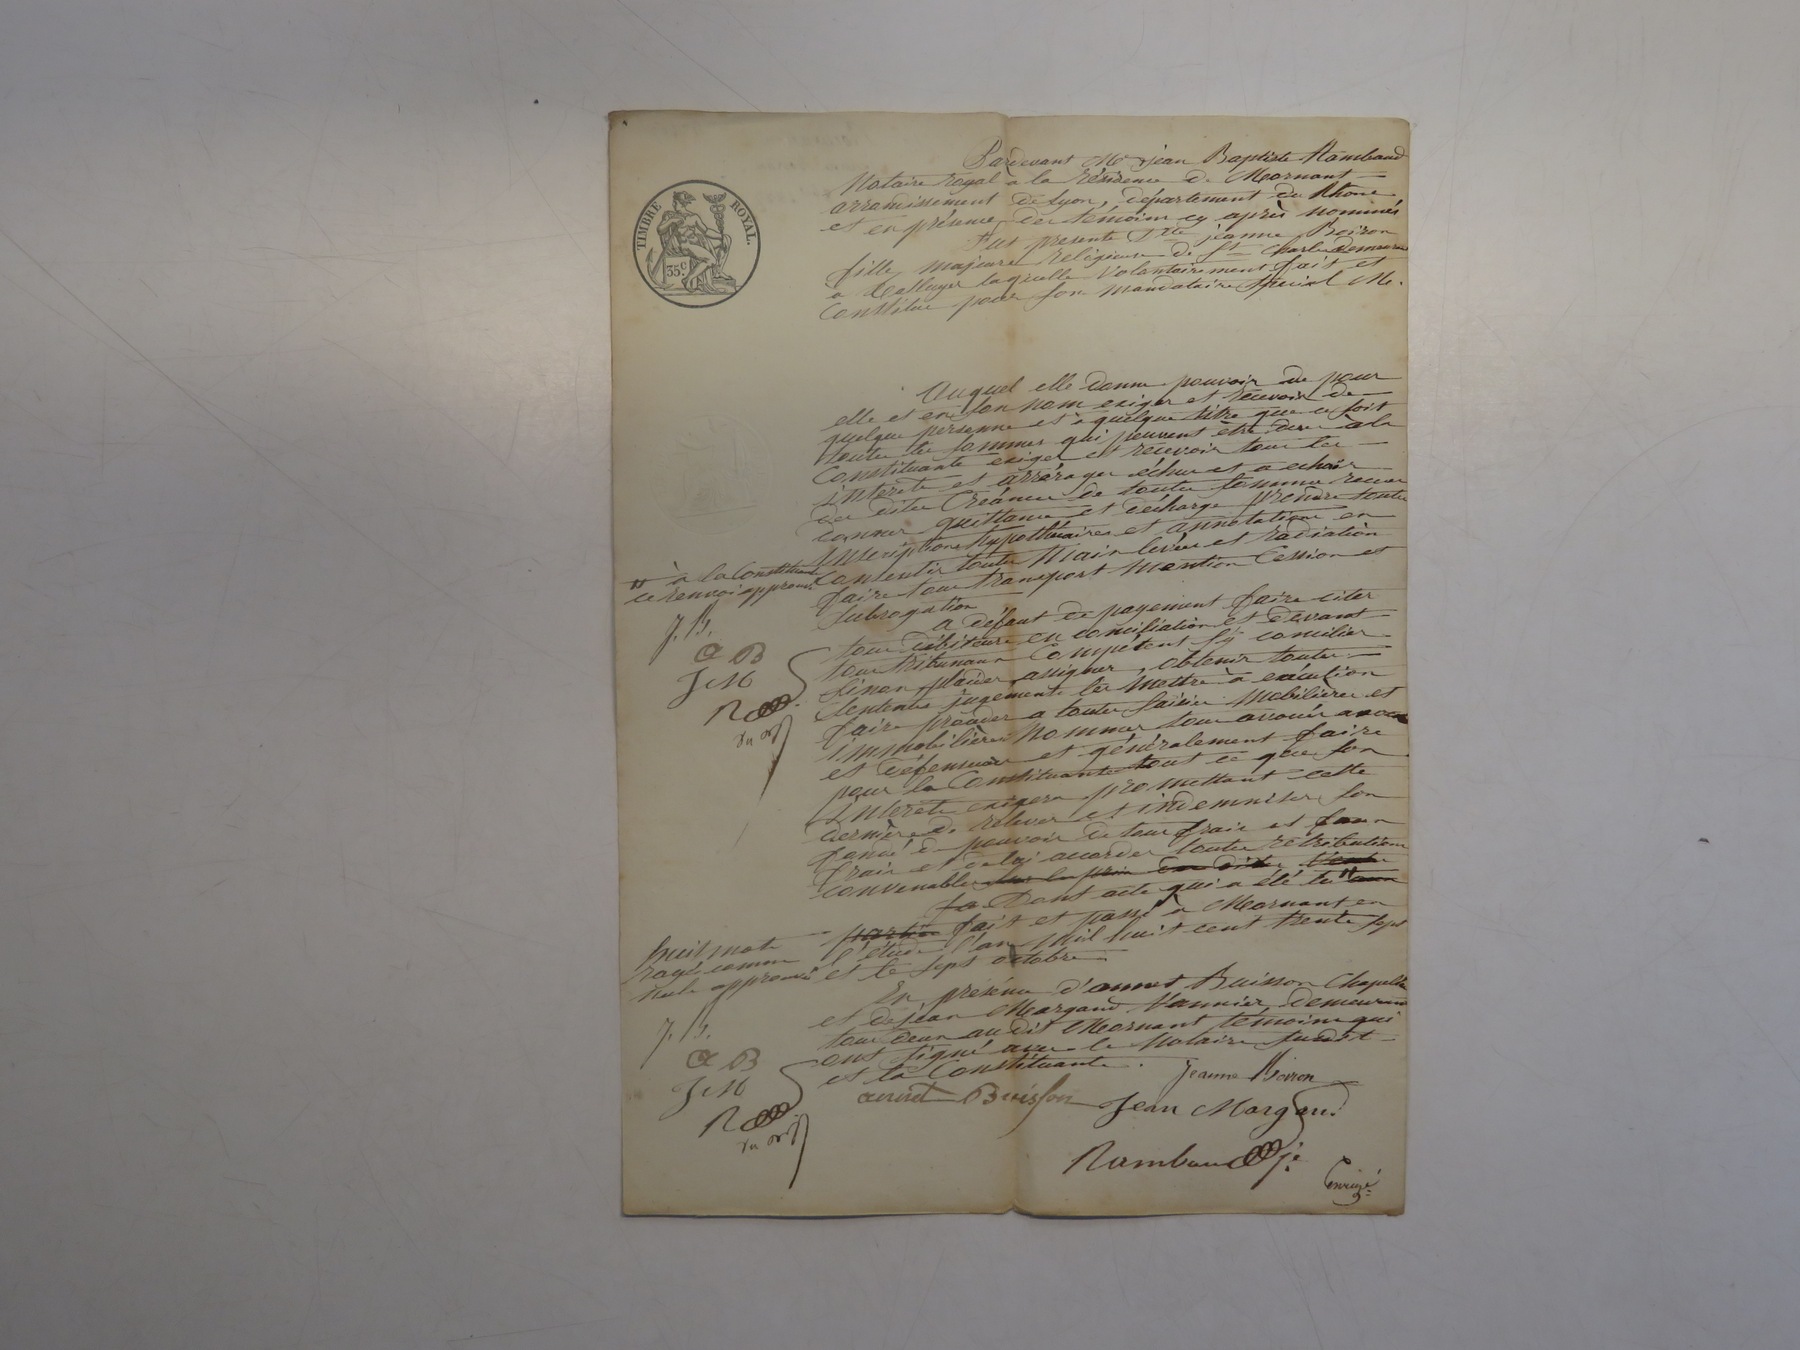 TIMBRE ROYAL.
35c.
Pardevant Me jean Baptiste Rambaud
Notaire royal à la résidence de Mornant
arrondissement de Lyon, département du Rhone
et en présence des temoins cy après nommés
Fut presente Dlle jeanne Boiron
fille majeure religieuse de St Charles demeurant
a laquelle volontairement fait et
Constitue pour son mandataire spécial Me.
Auquel elle donne pouvoir de pour
elle et en son nom exiger et recevoir de
quelque personne et à quelque titre que ce soit
toutes les sommes qui peuvent être dues à la
Constituante exiger et recevoir tous les
interets et arrérages échus et a echoir
des dites Créances de toutes sommes recues
donner quittance et décharge prendre toutes
Inscriptions hypothécaires et annotations en
Consentir toutes Main levées et radiation
faire tous transport mention Cession et
subrogation
a défaut de payement faire citer
tous débiteurs en conciliation et devant
tous tribunaux Compétent s'y concilier
sinon plaider, assigner, obtenir toutes
Sentences jugements les mettre à exécution
faire procéder a toutes saisies mobilières et
immobilières nommer tous avoués avocats
et défenseurs et généralement faire
pour la Constituante tout ce que son
Interets exigera promettant cette
dernière de relever et indemniser son
fondé de pouvoir de tous frais et faux
frais et de lui accorder toutes rétributions
convenables sur le prix des dites Ventes
fo Dont acte qui a été lu " aux
parties fait et passé a Mornant en
l'étude l'an Mil huit cent trente sept
et le sept octobre
En présence d'annet Buisson Chapellier
et de jean Margand Vannier, demeurant
tous deux au dit Mornant témoins qui
ont signé avec le Notaire susdit
et la Constituante.
" à la Constituante
ce renvoi approuvé
J. B.
a B
J M
R
huit mots
rayé comme
nuls approuvés
J. B.
a B
J M
R
Jeanne Boiron
annet Buisson
Jean Margand
Rambaud